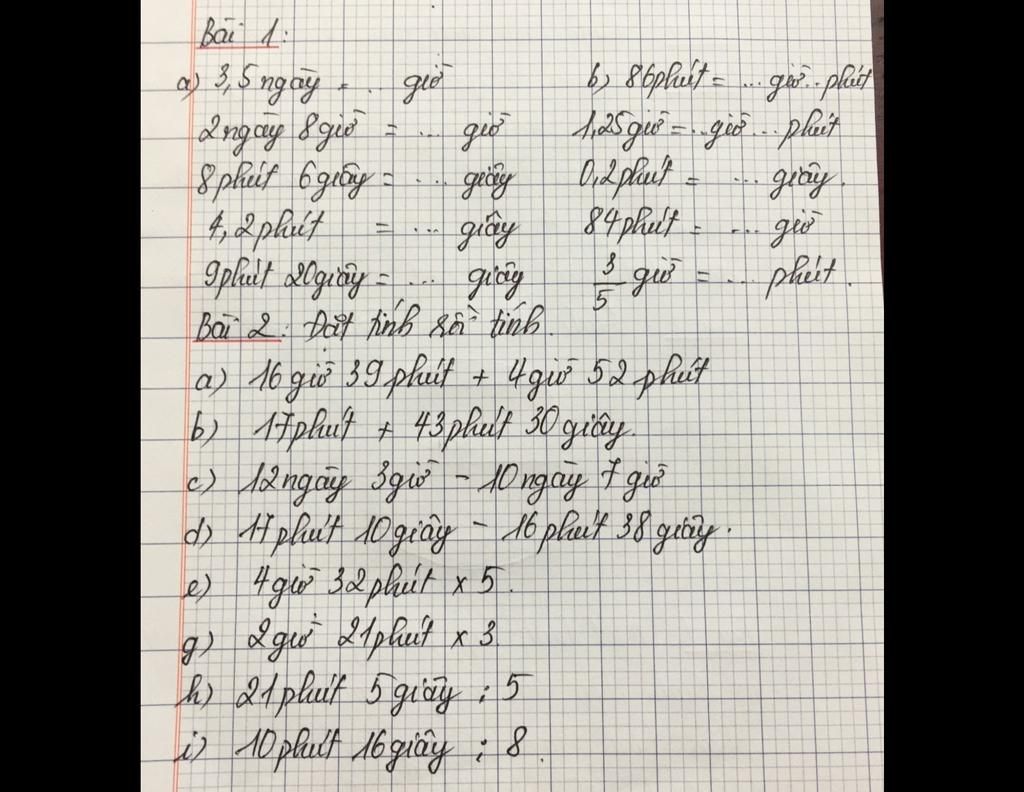 Bài 1:
a) 3,5 ngày = ... giờ b) 86 phút = ... giờ ... phút
2 ngày 8 giờ = ... giờ 1,25 giờ = ... giờ ... phút
8 phút 6 giây = ... giây 0,2 phút = ... giây.
4,2 phút = ... giây 84 phút = ... giờ
9 phút 20 giây = ... giây 3/5 giờ = ... phút.
Bài 2: Đặt tính rồi tính.
a) 16 giờ 39 phút + 4 giờ 52 phút
b) 17 phút + 43 phút 30 giây.
c) 12 ngày 3 giờ - 10 ngày 7 giờ
d) 17 phút 10 giây - 16 phút 38 giây.
e) 4 giờ 32 phút x 5.
g) 2 giờ 21 phút x 3
h) 21 phút 5 giây : 5
i) 10 phút 16 giây : 8.